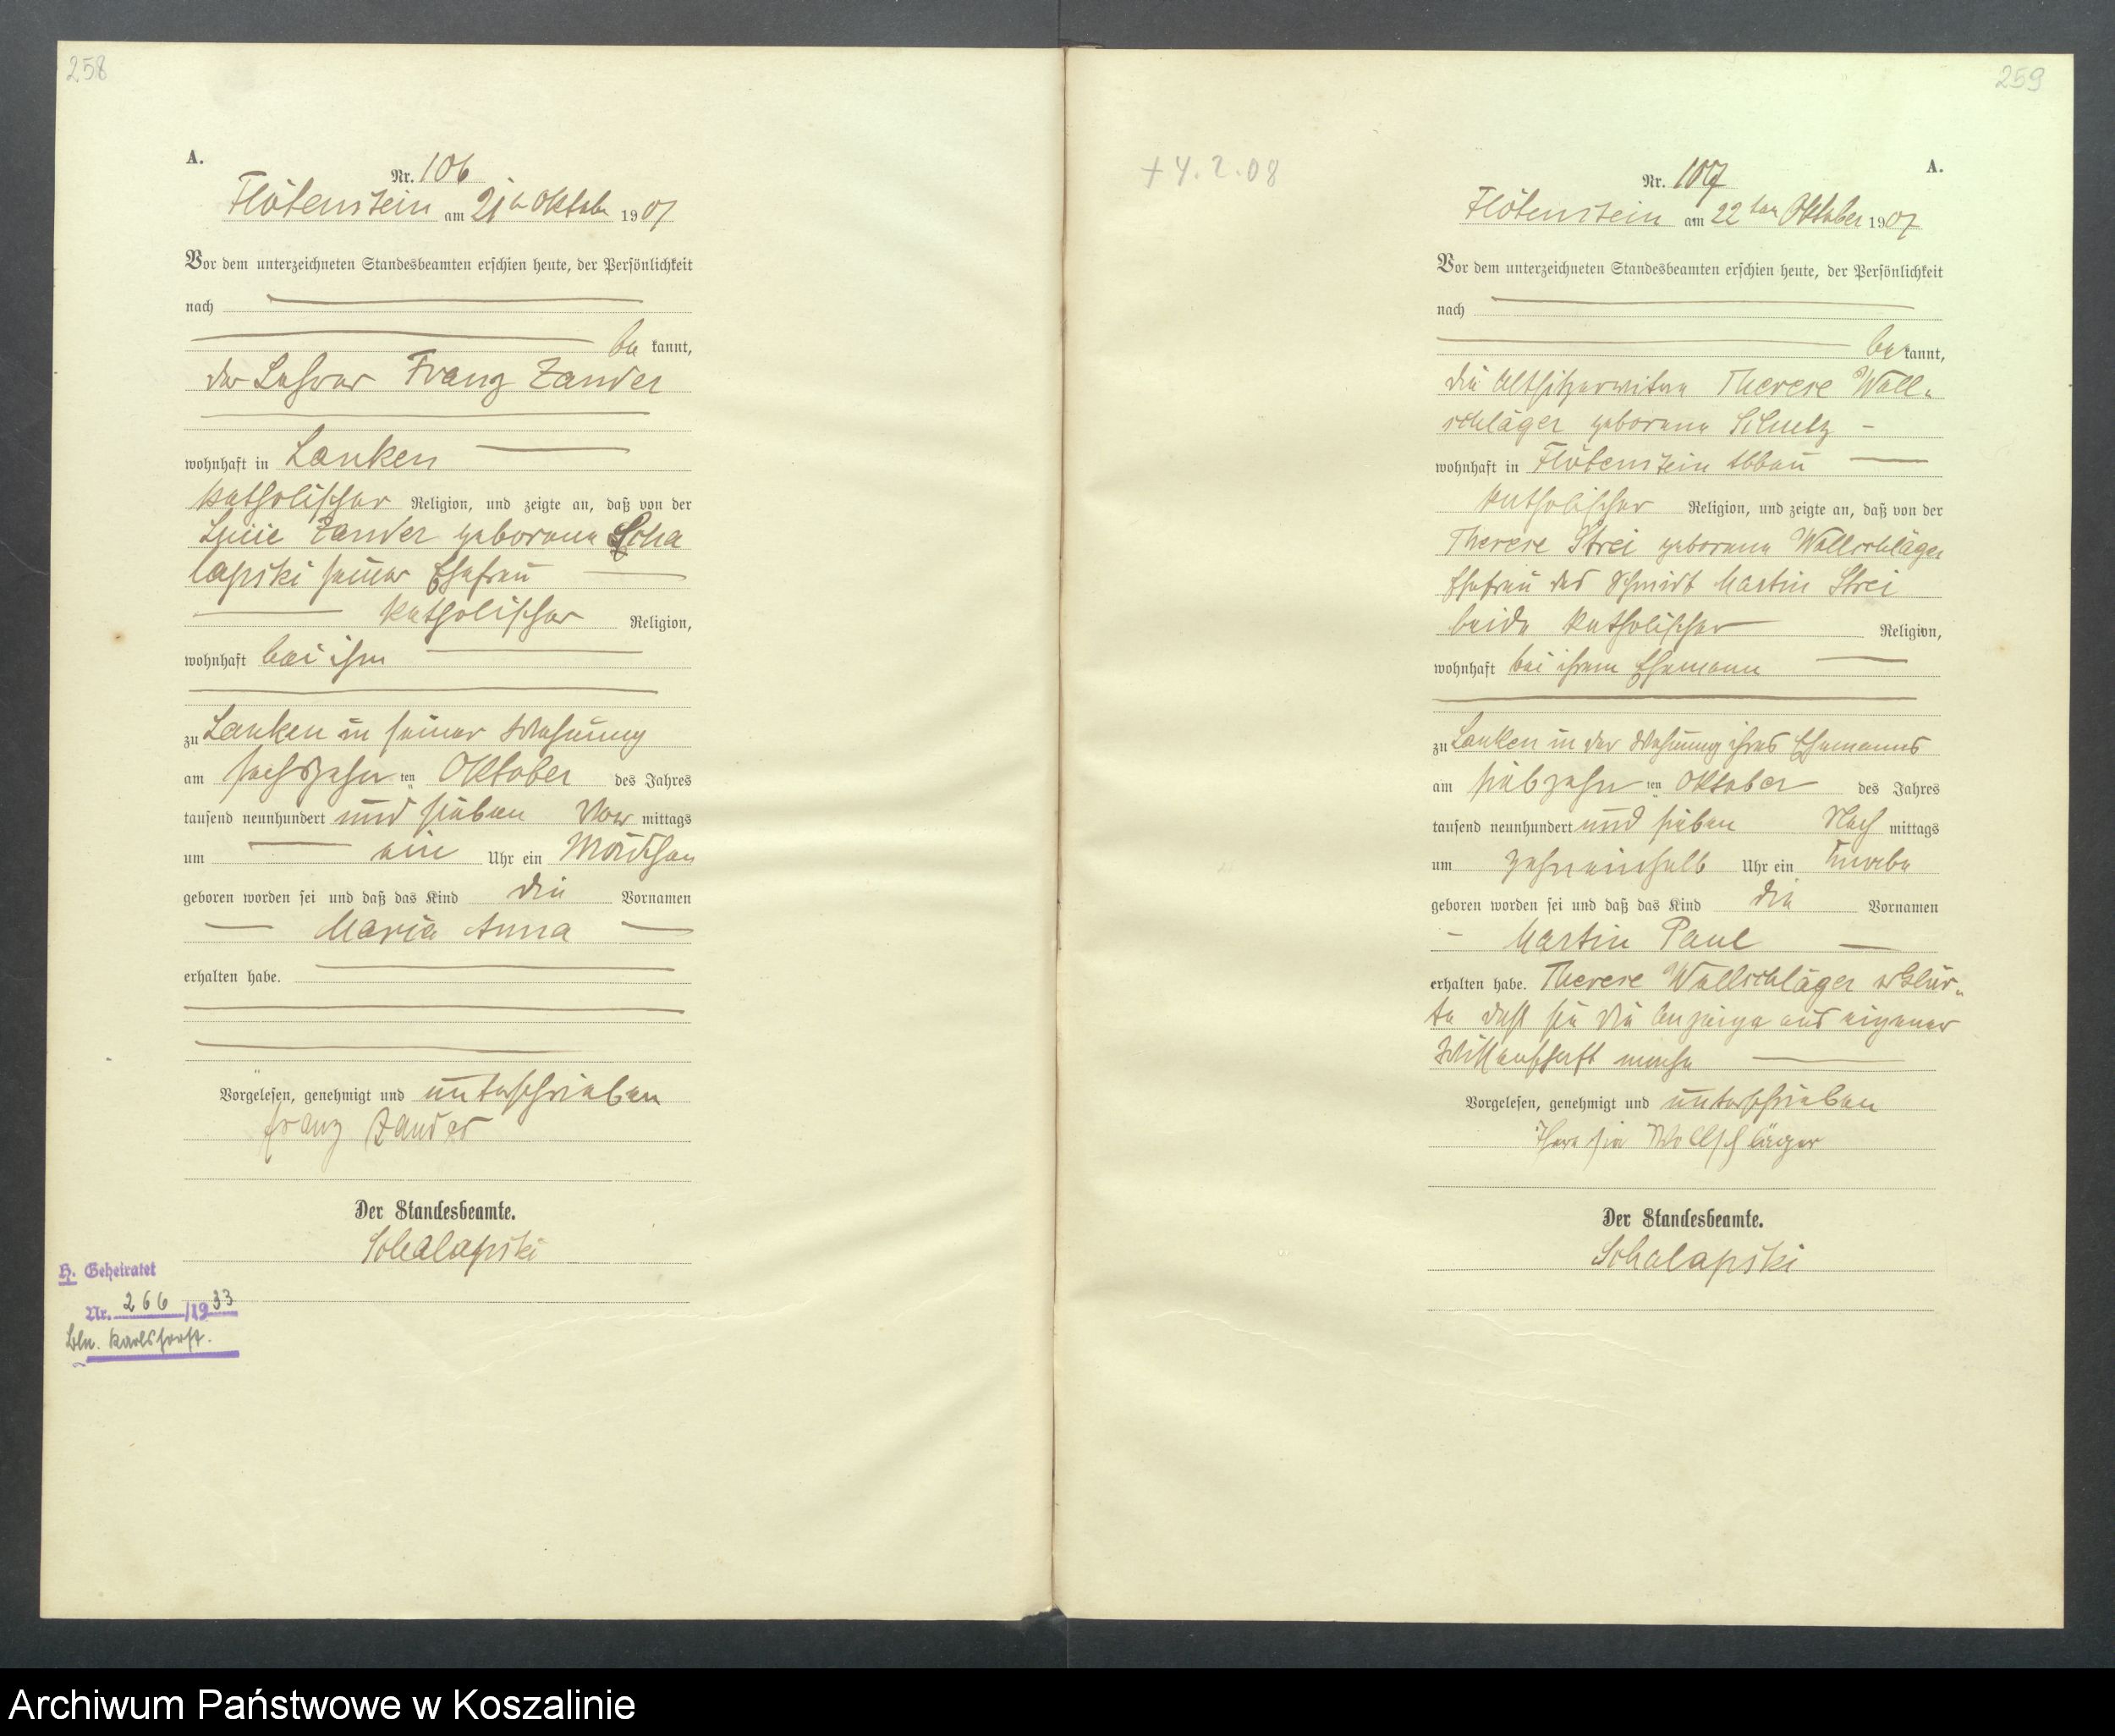 258
A.
Nr. 106
Flötenstein am 21ten Oktober 1907
Vor dem unterzeichneten Standesbeamten erschien heute, der Persönlichkeit
nach
be kannt,
der Lehrer Franz Zander
wohnhaft in Lanken
katholischer Religion, und zeigte an, daß von der
Zander geborene Scha
lapski seiner Ehefrau
katholischer Religion,
wohnhaft bei ihm
zu Lanken in seiner Wohnung
am sechszehn ten Oktober des Jahres
tausend neunhundert und sieben Vor mittags
um ein Uhr ein Mädchen
geboren worden sei und daß das Kind die Vornamen
Maria Anna
erhalten habe.
Vorgelesen, genehmigt und unterschrieben
Franz Zander
Der Standesbeamte.
Schalapski
H. Geheiratet
Nr. 266 /1933
Bln. Karlshorst.
259
+ 4.2.08
A.
Nr. 107
Flötenstein am 22ten Oktober 1907
Vor dem unterzeichneten Standesbeamten erschien heute, der Persönlichkeit
nach
be kannt,
die Altsitzerwitwe Therese Woll-
schläger geborene Schulz
wohnhaft in Flötenstein Abbau
katholischer Religion, und zeigte an, daß von der
Therese Strei geborene Wollschläger
Ehefrau des Schmidt Martin Strei
beide katholischer Religion,
wohnhaft bei ihrem Ehemann
zu Lanken in der Wohnung ihres Ehemanns
am siebzehn ten Oktober des Jahres
tausend neunhundert und sieben Nach mittags
um zehneinhalb Uhr ein Knabe
geboren worden sei und daß das Kind die Vornamen
Martin Paul
erhalten habe. Therese Wollschläger erklär-
te daß sie die Anzeige aus eigener
Wissenschaft mache
Vorgelesen, genehmigt und unterschrieben
Theresia Wollschläger
Der Standesbeamte.
Schalapski
Archiwum Państwowe w Koszalinie